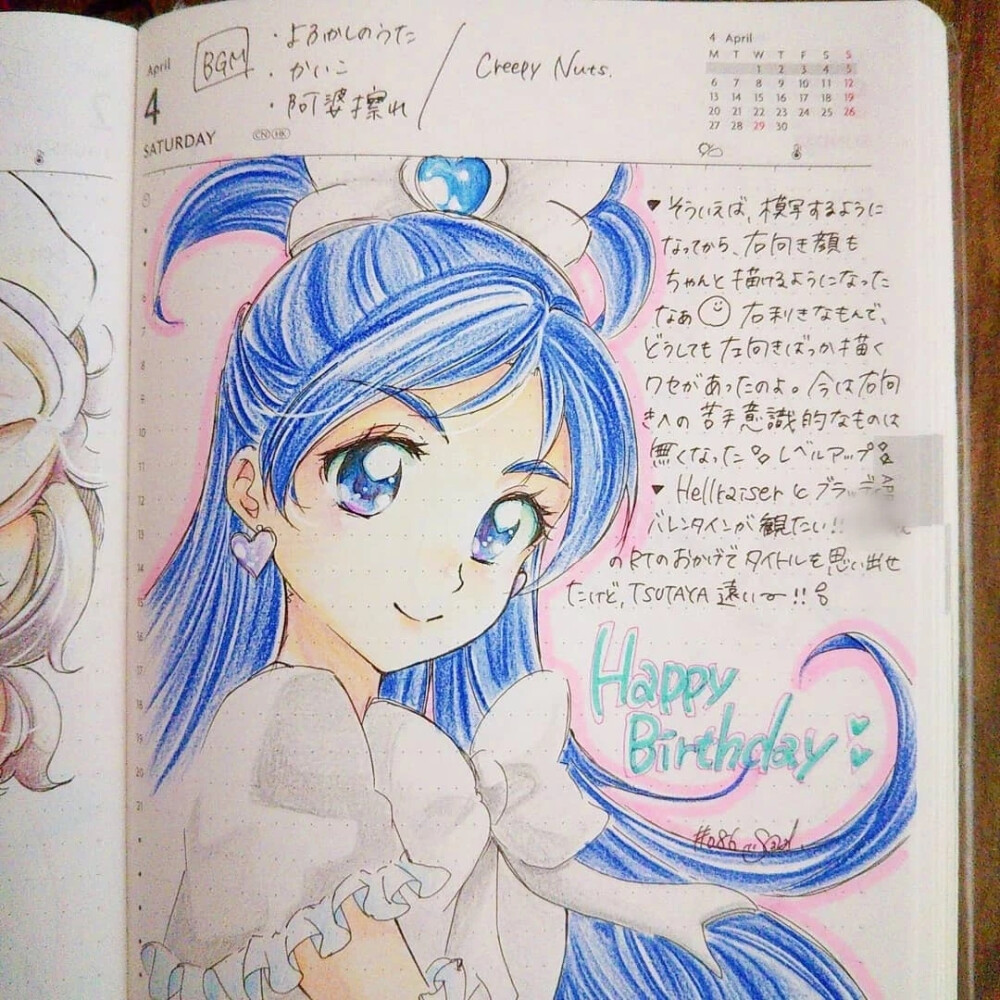 April
4
SATURDAY
CN HK
BGM
・よふかしのうた
・かいこ
・阿婆擦れ
Creepy Nuts.
4 April
M T W T F S S
1 2 3 4 5
6 7 8 9 10 11 12
13 14 15 16 17 18 19
20 21 22 23 24 25 26
27 28 29 30
▼そういえば、模写するように
なってから、右向き顔も
ちゃんと描けるようになった
なあ 右利きなもんで、
どうしても左向きばっか描く
クセがあったのよ。今は右向
きへの苦手意識的なものは
無くなった レベルアップ
▼Hellkaiserとブラッディ
バレンタインが観たい!!
のRTのおかげでタイトルを思い出せ
たけど、TSUTAYA遠いー!!
Happy
Birthday
#086
6
7
8
9
10
11
12
13
14
15
16
17
18
19
20
21